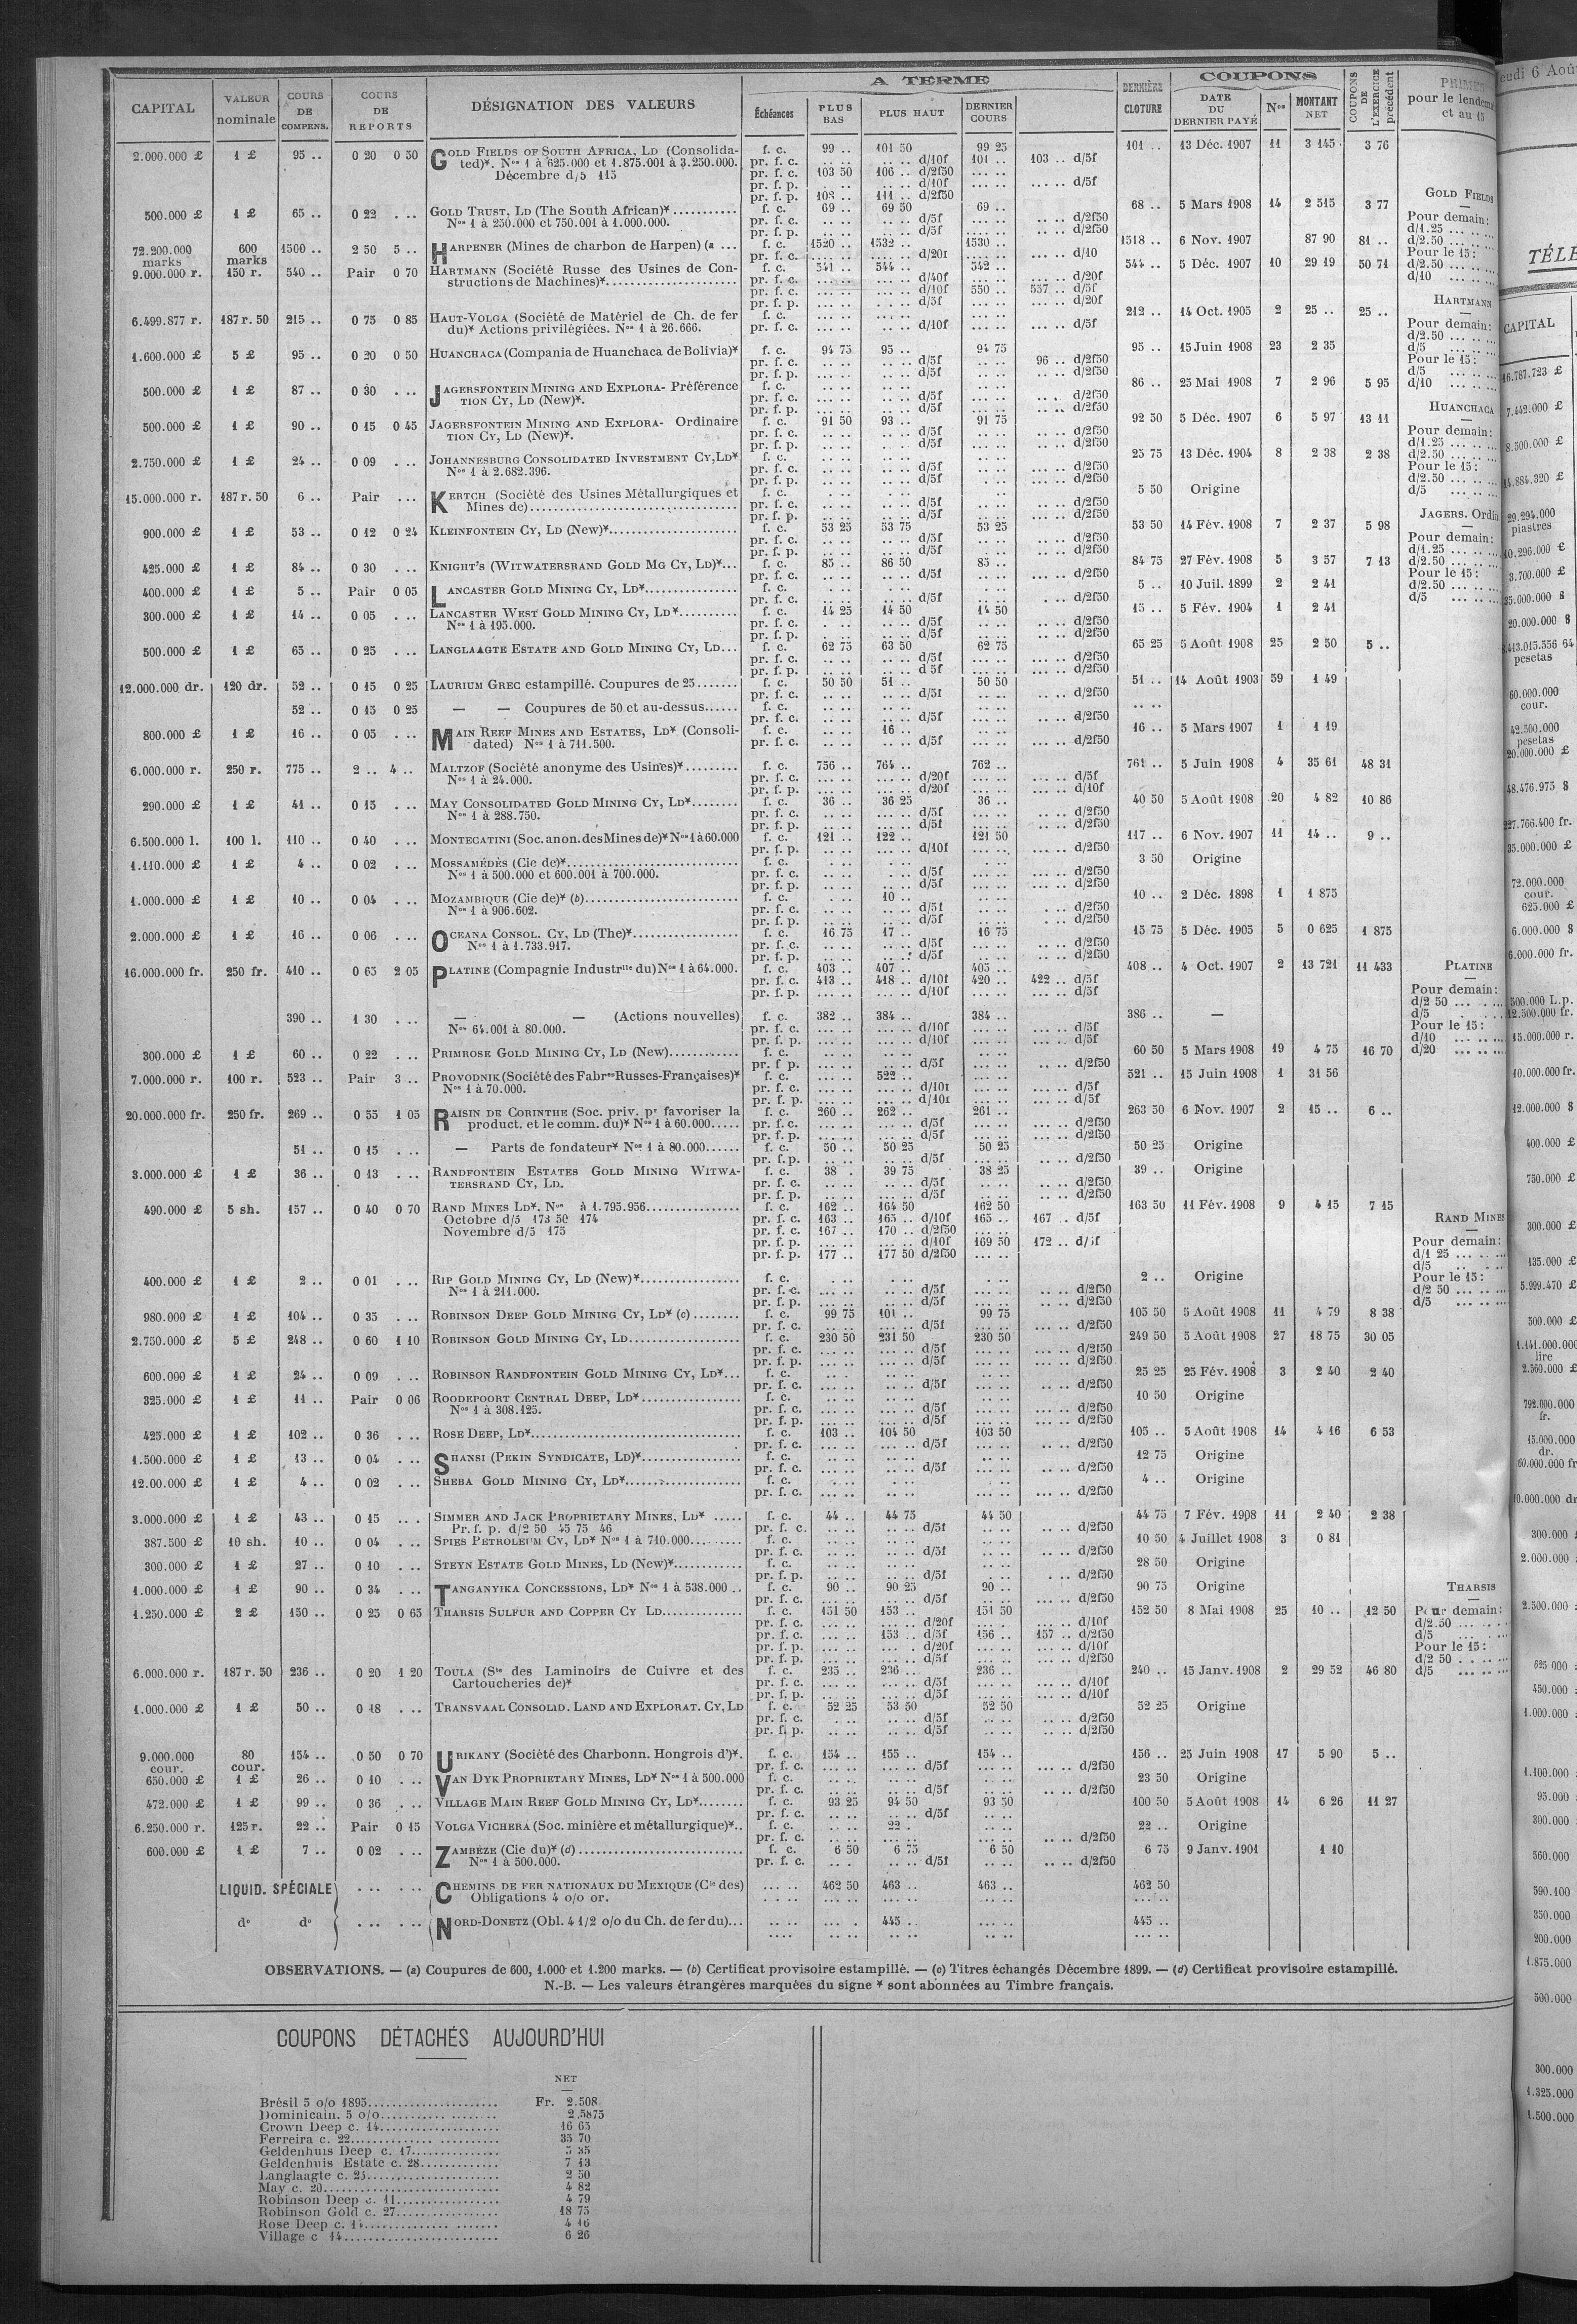 A TERME
COUPONS
CAPITAL
VALEUR nominale
COURS DE COMPENS.
COURS DE REPORTS
DÉSIGNATION DES VALEURS
Échéances
PLUS BAS
PLUS HAUT
DERNIER COURS
DERNIÈRE CLOTURE
DATE DU DERNIER PAYÉ
Nos
MONTANT NET
COUPONS DE L'EXERCICE précédent
pour le lendemain
et au 15
2.000.000 £ 1 £ 95 .. 0 20 0 50 GOLD FIELDS OF SOUTH AFRICA, LD (Consolida- f. c. 99 .. 101 50 99 25 101 .. 13 Déc. 1907 11 3 145 3 76
ted)*. Nos 1 à 625.000 et 1.875.001 à 3.250.000. pr. f. c. .. .. .. .. d/10f 101 .. 103 .. d/5f
Décembre d/5 115 pr. f. c. 103 50 106 .. d/2f50 .. ..
pr. f. p. .. .. .. .. d/10f .. .. .. .. d/5f
pr. f. p. 108 .. 111 .. d/2f50
500.000 £ 1 £ 65 .. 0 22 . .. GOLD TRUST, LD (The South African)* f. c. 69 .. 69 50 69 .. 68 .. 5 Mars 1908 14 2 515 3 77
Nos 1 à 250.000 et 750.001 à 1.000.000. pr. f. c. .. .. d/5f .. .. d/2f50
pr. f. p. .. .. d/5f .. .. d/2f50
72.200.000 marks 600 marks 1500 .. 2 50 5 .. HARPENER (Mines de charbon de Harpen) (a ... f. c. 1520 .. 1532 .. 1530 .. 1518 .. 6 Nov. 1907 87 90 81 ..
pr. f. c. .. .. d/20f .. .. d/10
9.000.000 r. 150 r. 540 .. Pair 0 70 HARTMANN (Société Russe des Usines de Con- f. c. 541 .. 544 .. 542 .. 544 .. 5 Déc. 1907 10 29 19 50 71
structions de Machines)* pr. f. c. .. .. d/40f .. .. d/20f
pr. f. c. .. .. d/10f 550 .. 557 .. d/5f
pr. f. p. .. .. d/5f .. .. d/20f
6.499.877 r. 187 r. 50 215 .. 0 75 0 85 HAUT-VOLGA (Société de Matériel de Ch. de fer f. c. 212 .. 14 Oct. 1905 2 25 .. 25 ..
du)* Actions privilégiées. Nos 1 à 26.666. pr. f. c. .. .. d/10f .. .. d/5f
1.600.000 £ 5 £ 95 .. 0 20 0 50 HUANCHACA (Compania de Huanchaca de Bolivia)* f. c. 94 75 95 .. 94 75 95 .. 15 Juin 1908 23 2 35
pr. f. c. .. .. d/5f 96 .. d/2f50
pr. f. p. .. .. d/5f .. .. d/2f50
500.000 £ 1 £ 87 .. 0 30 . .. JAGERSFONTEIN MINING AND EXPLORA- Préférence f. c. 86 .. 25 Mai 1908 7 2 96 5 95
TION CY, LD (New)*. pr. f. c. .. .. d/5f .. .. d/2f50
pr. f. p. .. .. d/5f .. .. d/2f50
500.000 £ 1 £ 90 .. 0 15 0 45 JAGERSFONTEIN MINING AND EXPLORA- Ordinaire f. c. 91 50 93 .. 91 75 92 50 5 Déc. 1907 6 5 97 13 11
TION CY, LD (New)*. pr. f. c. .. .. d/5f .. .. d/2f50
pr. f. p. .. .. d/5f .. .. d/2f50
2.750.000 £ 1 £ 24 .. 0 09 . .. JOHANNESBURG CONSOLIDATED INVESTMENT CY, LD* f. c. 25 75 13 Déc. 1904 8 2 38 2 38
Nos 1 à 2.682.396. pr. f. c. .. .. d/5f .. .. d/2f50
pr. f. p. .. .. d/5f .. .. d/2f50
15.000.000 r. 187 r. 50 6 .. Pair ... KERTCH (Société des Usines Métallurgiques et f. c. 5 50 Origine
Mines de) pr. f. c. .. .. d/5f .. .. d/2f50
pr. f. p. .. .. d/5f .. .. d/2f50
900.000 £ 1 £ 53 .. 0 12 0 24 KLEINFONTEIN CY, LD (New)* f. c. 53 25 53 75 53 25 53 50 14 Fév. 1908 7 2 37 5 98
pr. f. c. .. .. d/5f .. .. d/2f50
pr. f. p. .. .. d/5f .. .. d/2f50
425.000 £ 1 £ 84 .. 0 30 . .. KNIGHT'S (WITWATERSRAND GOLD MG CY, LD)* f. c. 85 .. 86 50 85 .. 84 75 27 Fév. 1908 5 3 57 7 13
pr. f. c. .. .. d/5f .. .. d/2f50
400.000 £ 1 £ 5 .. Pair 0 05 LANCASTER GOLD MINING CY, LD* f. c. 5 .. 10 Juil. 1899 2 2 41
pr. f. c. .. .. d/5f .. .. d/2f50
300.000 £ 1 £ 14 .. 0 05 . .. LANCASTER WEST GOLD MINING CY, LD* f. c. 14 25 14 50 14 50 15 .. 5 Fév. 1904 1 2 41
Nos 1 à 195.000. pr. f. c. .. .. d/5f .. .. d/2f50
pr. f. p. .. .. d/5f .. .. d/2f50
500.000 £ 1 £ 65 .. 0 25 . .. LANGLAAGTE ESTATE AND GOLD MINING CY, LD f. c. 62 75 63 50 62 75 65 25 5 Août 1908 25 2 50 5 ..
pr. f. c. .. .. d/5f .. .. d/2f50
pr. f. p. .. .. d 5f .. .. d/2f50
12.000.000 dr. 120 dr. 52 .. 0 15 0 25 LAURIUM GREC estampillé. Coupures de 25 f. c. 50 50 51 .. 50 50 51 .. 14 Août 1903 59 1 49
pr. f. c. .. .. d/5f .. .. d/2f50
52 .. 0 15 0 25 — — Coupures de 50 et au-dessus f. c.
pr. f. c. .. .. d/5f .. .. d/2f50
800.000 £ 1 £ 16 .. 0 05 . .. MAIN REEF MINES AND ESTATES, LD* (Consoli- f. c. 16 .. 16 .. 5 Mars 1907 1 1 19
dated) Nos 1 à 711.500. pr. f. c. .. .. d/5f .. .. d/2f50
6.000.000 r. 250 r. 775 .. 2 .. 4 .. MALTZOF (Société anonyme des Usines)* f. c. 756 .. 764 .. 762 .. 761 .. 5 Juin 1908 4 35 61 48 31
Nos 1 à 24.000. pr. f. c. .. .. d/20f .. .. d/5f
pr. f. p. .. .. d/20f .. .. d/10f
290.000 £ 1 £ 41 .. 0 15 . .. MAY CONSOLIDATED GOLD MINING CY, LD* f. c. 36 .. 36 25 36 .. 40 50 5 Août 1908 20 4 82 10 86
Nos 1 à 288.750. pr. f. c. .. .. d/5f .. .. d/2f50
pr. f. p. .. .. d/5f .. .. d/2f50
6.500.000 l. 100 l. 110 .. 0 40 . .. MONTECATINI (Soc. anon. des Mines de)* Nos 1 à 60.000 f. c. 121 .. 122 .. 121 50 117 .. 6 Nov. 1907 11 14 .. 9 ..
pr. f. p. .. .. d/10f .. .. d/2f50
1.110.000 £ 1 £ 4 .. 0 02 . .. MOSSAMÉDÈS (Cie de)* f. c. 3 50 Origine
Nos 1 à 500.000 et 600.001 à 700.000. pr. f. c. .. .. d/5f .. .. d/2f50
pr. f. p. .. .. d/5f .. .. d/2f50
1.000.000 £ 1 £ 10 .. 0 04 . .. MOZAMBIQUE (Cie de)* (b) f. c. 10 .. 10 .. 2 Déc. 1898 1 1 875
Nos 1 à 906.602. pr. f. c. .. .. d/5f .. .. d/2f50
pr. f. p. .. .. d/5f .. .. d/2f50
2.000.000 £ 1 £ 16 .. 0 06 . .. OCEANA CONSOL. CY, LD (The)* f. c. 16 75 17 .. 16 75 15 75 5 Déc. 1905 5 0 625 1 875
Nos 1 à 1.733.917. pr. f. c. .. .. d/5f .. .. d/2f50
pr. f. p. .. .. d/5f .. .. d/2f50
16.000.000 fr. 250 fr. 410 .. 0 65 2 05 PLATINE (Compagnie Industrlle du) Nos 1 à 64.000. f. c. 403 .. 407 .. 405 .. 408 .. 4 Oct. 1907 2 13 721 11 433
pr. f. c. 413 .. 418 .. d/10f 420 .. 422 .. d/5f
pr. f. p. .. .. d/10f .. .. d/5f
390 .. 1 30 . .. — — (Actions nouvelles) f. c. 382 .. 384 .. 384 .. 386 .. —
Nos 64.001 à 80.000. pr. f. c. .. .. d/10f .. .. d/5f
pr. f. p. .. .. d/10f .. .. d/5f
300.000 £ 1 £ 60 .. 0 22 . .. PRIMROSE GOLD MINING CY, LD (New) f. c. 60 50 5 Mars 1908 19 4 75 16 70
pr. f. p. .. .. d/5f .. .. d/2f50
7.000.000 r. 100 r. 523 .. Pair 3 .. PROVODNIK (Société des Fabres Russes-Françaises)* f. c. 522 .. 521 .. 15 Juin 1908 1 31 56
Nos 1 à 70.000. pr. f. c. .. .. d/10f .. .. d/5f
pr. f. p. .. .. d/10f .. .. d/5f
20.000.000 fr. 250 fr. 269 .. 0 55 1 05 RAISIN DE CORINTHE (Soc. priv. pr favoriser la f. c. 260 .. 262 .. 261 .. 263 50 6 Nov. 1907 2 15 .. 6 ..
product. et le comm. du)* Nos 1 à 60.000 pr. f. c. .. .. d/5f .. .. d/2f50
pr. f. p. .. .. d/5f .. .. d/2f50
51 .. 0 15 . .. — Parts de fondateur* Nos 1 à 80.000 f. c. 50 .. 50 25 50 25 50 25 Origine
pr. f. p. .. .. d/5f .. .. d/2f50
3.000.000 £ 1 £ 36 .. 0 13 . .. RANDFONTEIN ESTATES GOLD MINING WITWA- f. c. 38 . 39 75 38 25 39 .. Origine
TERSRAND CY, LD. pr. f. c. .. .. d/5f .. .. d/2f50
pr. f. p. .. .. d/5f .. .. d/2f50
490.000 £ 5 sh. 157 .. 0 40 0 70 RAND MINES LD*. Nos à 1.795.956 f. c. 162 .. 164 50 162 50 163 50 11 Fév. 1908 9 4 15 7 15
Octobre d/5 173 50 174 pr. f. c. 163 .. 165 .. d/10f 165 .. 167 .. d/5f
Novembre d/5 175 pr. f. c. 167 .. 170 .. d/2f50
pr. f. p. .. .. d/10f 169 50 172 .. d/5f
pr. f. p. 177 .. 177 50 d/2f50
400.000 £ 1 £ 2 .. 0 01 . .. RIP GOLD MINING CY, LD (New)* f. c. 2 .. Origine
Nos 1 à 211.000. pr. f. c. .. .. d/5f .. .. d/2f50
pr. f. p. .. .. d/5f .. .. d/2f50
980.000 £ 1 £ 104 .. 0 35 . .. ROBINSON DEEP GOLD MINING CY, LD* (c) f. c. 99 75 101 .. 99 75 105 50 5 Août 1908 11 4 79 8 38
pr. f. c. .. .. d/5f .. .. d/2f50
2.750.000 £ 5 £ 248 .. 0 60 1 10 ROBINSON GOLD MINING CY, LD f. c. 230 50 231 50 230 50 249 50 5 Août 1908 27 18 75 30 05
pr. f. c. .. .. d/5f .. .. d/2f50
pr. f. p. .. .. d/5f .. .. d/2f50
600.000 £ 1 £ 24 .. 0 09 . .. ROBINSON RANDFONTEIN GOLD MINING CY, LD* f. c. 25 25 25 Fév. 1908 3 2 40 2 40
pr. f. c. .. .. d/5f .. .. d/2f50
325.000 £ 1 £ 11 .. Pair 0 06 ROODEPOORT CENTRAL DEEP, LD* f. c. 10 50 Origine
Nos 1 à 308.125. pr. f. c. .. .. d/5f .. .. d/2f50
pr. f. p. .. .. d/5f .. .. d/2f50
425.000 £ 1 £ 102 .. 0 36 . .. ROSE DEEP, LD* f. c. 103 .. 104 50 103 50 105 .. 5 Août 1908 14 4 16 6 53
pr. f. c. .. .. d/5f .. .. d/2f50
1.500.000 £ 1 £ 13 .. 0 04 . .. SHANSI (PEKIN SYNDICATE, LD)* f. c. 12 75 Origine
pr. f. c. .. .. d/5f .. .. d/2f50
12.00.000 £ 1 £ 4 .. 0 02 . .. SHEBA GOLD MINING CY, LD* f. c. 4 .. Origine
pr. f. c. .. .. d/2f50
3.000.000 £ 1 £ 43 .. 0 15 . .. SIMMER AND JACK PROPRIETARY MINES, LD* f. c. 44 .. 44 75 44 50 44 75 7 Fév. 1908 11 2 40 2 38
Pr. f. p. d/2 50 45 75 46 pr. f. c. .. .. d/5f .. .. d/2f50
387.500 £ 10 sh. 10 .. 0 04 . .. SPIES PETROLEUM CY, LD* Nos 1 à 710.000 f. c. 10 50 4 Juillet 1908 3 0 81
pr. f. c. .. .. d/5f .. .. d/2f50
300.000 £ 1 £ 27 .. 0 10 . .. STEYN ESTATE GOLD MINES, LD (New)* f. c. 28 50 Origine
pr. f. p. .. .. d/5f .. .. d/2f50
1.000.000 £ 1 £ 90 .. 0 34 . .. TANGANYIKA CONCESSIONS, LD* Nos 1 à 538.000 .. f. c. 90 .. 90 25 90 .. 90 75 Origine
pr. f. c. .. .. d/5f .. .. d/2f50
1.250.000 £ 2 £ 150 .. 0 25 0 65 THARSIS SULFUR AND COPPER CY LD f. c. 151 50 153 .. 151 50 152 50 8 Mai 1908 25 10 .. 12 50
pr. f. c. .. .. d/20f .. .. d/10f
pr. f. c. .. .. 153 .. d/5f 156 .. 157 .. d/2f50
pr. f. p. .. .. d/20f .. .. d/10f
pr. f. p. .. .. d/5f .. .. d/2f50
6.000.000 r. 187 r. 50 236 .. 0 20 1 20 TOULA (Sté des Laminoirs de Cuivre et des f. c. 235 .. 236 .. 236 .. 240 .. 15 Janv. 1908 2 29 52 46 80
Cartoucheries de)* pr. f. c. .. .. d/5f .. .. d/10f
pr. f. p. .. .. d/5f .. .. d/10f
1.000.000 £ 1 £ 50 .. 0 18 . .. TRANSVAAL CONSOLID. LAND AND EXPLORAT. CY, LD f. c. 52 25 53 50 52 50 52 25 Origine
pr. f. c. .. .. d/5f .. .. d/2f50
pr. f. p. .. .. d/5f .. .. d/2f50
9.000.000 cour. 80 cour. 154 .. 0 50 0 70 URIKANY (Société des Charbonn. Hongrois d')*. f. c. 154 .. 155 .. 154 .. 156 .. 25 Juin 1908 17 5 90 5 ..
pr. f. c. .. .. d/5f .. .. d/2f50
650.000 £ 1 £ 26 .. 0 10 . .. VAN DYK PROPRIETARY MINES, LD* Nos 1 à 500.000 f. c. 23 50 Origine
pr. f. c. .. .. d/5f .. .. d/2f50
472.000 £ 1 £ 99 .. 0 36 . .. VILLAGE MAIN REEF GOLD MINING CY, LD* f. c. 93 25 94 50 93 50 100 50 5 Août 1908 14 6 26 11 27
pr. f. c. .. .. d/5f
6.250.000 r. 125 r. 22 .. Pair 0 15 VOLGA VICHERA (Soc. minière et métallurgique)* f. c. 22 . 22 .. Origine
pr. f. c. .. .. d/2f50
600.000 £ 1 £ 7 .. 0 02 . .. ZAMBÈZE (Cie du)* (d) f. c. 6 50 6 75 6 50 6 75 9 Janv. 1901 1 10
Nos 1 à 500.000. pr. f. c. .. .. d/5f .. .. d/2f50
LIQUID. SPÉCIALE CHEMINS DE FER NATIONAUX DU MEXIQUE (Cie des) 462 50 463 .. 463 .. 462 50
Obligations 4 o/o or.
do do NORD-DONETZ (Obl. 4 1/2 o/o du Ch. de fer du) 445 .. 445 ..
GOLD FIELDS
Pour demain:
d/1.25
d/2.50
Pour le 15:
d/2.50
d/10
HARTMANN
Pour demain:
d/2.50
d/5
Pour le 15:
d/5
d/10
HUANCHACA
Pour demain:
d/1.25
d/2.50
Pour le 15:
d/2.50
d/5
JAGERS. Ordin
Pour demain:
d/1.25
d/2.50
Pour le 15:
d/2.50
d/5
PLATINE
Pour demain:
d/2 50
d/5
Pour le 15:
d/10
d/20
RAND MINES
Pour demain:
d/1 25
d/5
Pour le 15:
d/2 50
d/5
THARSIS
Pour demain:
d/2.50
d/5
Pour le 15:
d/2 50
d/5
OBSERVATIONS. — (a) Coupures de 600, 1.000 et 1.200 marks. — (b) Certificat provisoire estampillé. — (c) Titres échangés Décembre 1899. — (d) Certificat provisoire estampillé.
N.-B. — Les valeurs étrangères marquées du signe * sont abonnées au Timbre français.
COUPONS DÉTACHÉS AUJOURD'HUI
NET
Brésil 5 o/o 1895 Fr. 2.508
Dominicain. 5 o/o 2.5875
Crown Deep c. 14 16 65
Ferreira c. 22 35 70
Geldenhuis Deep c. 17 5 35
Geldenhuis Estate c. 28 7 13
Langlaagte c. 25 2 50
May c. 20 4 82
Robinson Deep c. 11 4 79
Robinson Gold c. 27 18 75
Rose Deep c. 14 4 16
Village c 14 6 26
eudi 6 Aoû
TÉLÉ
CAPITAL
16.787.723 £
7.442.000 £
8.500.000 £
14.884.320 £
29.294.000 piastres
10.296.000 £
3.700.000 £
35.000.000 $
20.000.000 $
.413.015.556 64 pesetas
60.000.000 cour.
42.500.000 pesetas
20.000.000 £
48.476.975 $
227.766.400 fr.
35.000.000 £
72.000.000 cour.
625.000 £
6.000.000 $
6.000.000 fr.
500.000 L.p.
12.500.000 fr.
15.000.000 r.
10.000.000 fr.
12.000.000 $
400.000 £
750.000 £
300.000 £
135.000 £
5.999.470 £
500.000 £
1.141.000.000 lire
2.560.000 £
792.000.000 fr.
15.000.000 dr.
60.000.000 fr
10.000.000 dr
300.000
2.000.000
2.500.000
625 000
450.000
1.000.000
1.100.000
95.000
300.000
560.000
590.100
350.000
200.000
1.875.000
500.000
300.000
1.325.000
1.500.000